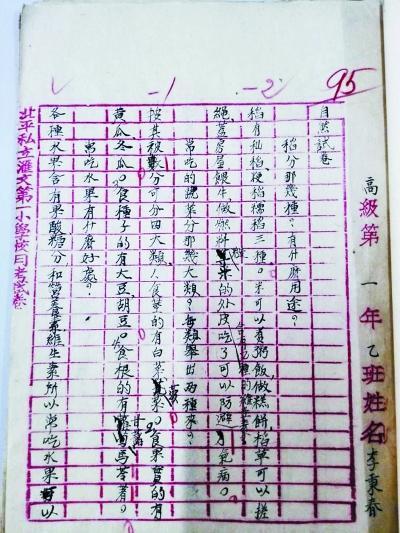 95
-2
-1
高級第一年乙班姓名李東春
自然試卷
稻分那幾種？有什麼用途？
稻有秈稻、粳稻、糯稻三種。米可以煮粥飯，做糕餅，稻草可以搓
繩，蓋房屋，餵牛，做燃料，米的外皮吃了可以防避
病。
常吃的蔬菜分那幾大類？每類舉出兩種來？
按其被食分可分四大類，食葉的有白菜菜。食果實的有
黃瓜、冬瓜。食種子的有大豆、胡豆。食根的有甘薯馬苓薯。
常吃水果有什麼好處？
各種水果含有果酸糖分和營養素維生素所以常吃水果可以
北平私立滙文第一小學校月考試卷